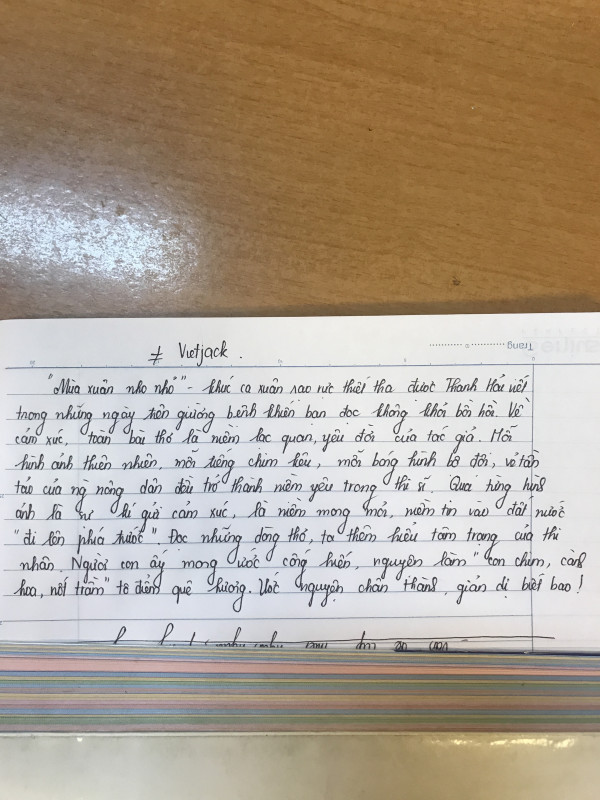 Trang
# Vietjack.
"Mùa xuân nho nhỏ" - khúc ca xuân rạo rực thiết tha được Thanh Hải viết
trong những ngày trên giường bệnh khiến bạn đọc không khỏi bồi hồi. Về
cảm xúc, toàn bài thơ là niềm lạc quan, yêu đời của tác giả. Mỗi
hình ảnh thiên nhiên, mỗi tiếng chim kêu, mỗi bóng hình bộ đội, vẻ tần
tảo của ng nông dân đều trở thành niềm yêu trong thi sĩ. Qua từng hình
ảnh là sự kí gửi cảm xúc, là niềm mong mỏi, niềm tin vào đất nước
"đi lên phía trước". Đọc những dòng thơ, ta thêm hiểu tâm trạng của thi
nhân. Người con ấy mong ước cống hiến, nguyện làm "con chim, cành
hoa, nốt trầm" tô điểm quê hương. Ước nguyện chân thành, giản dị biết bao!